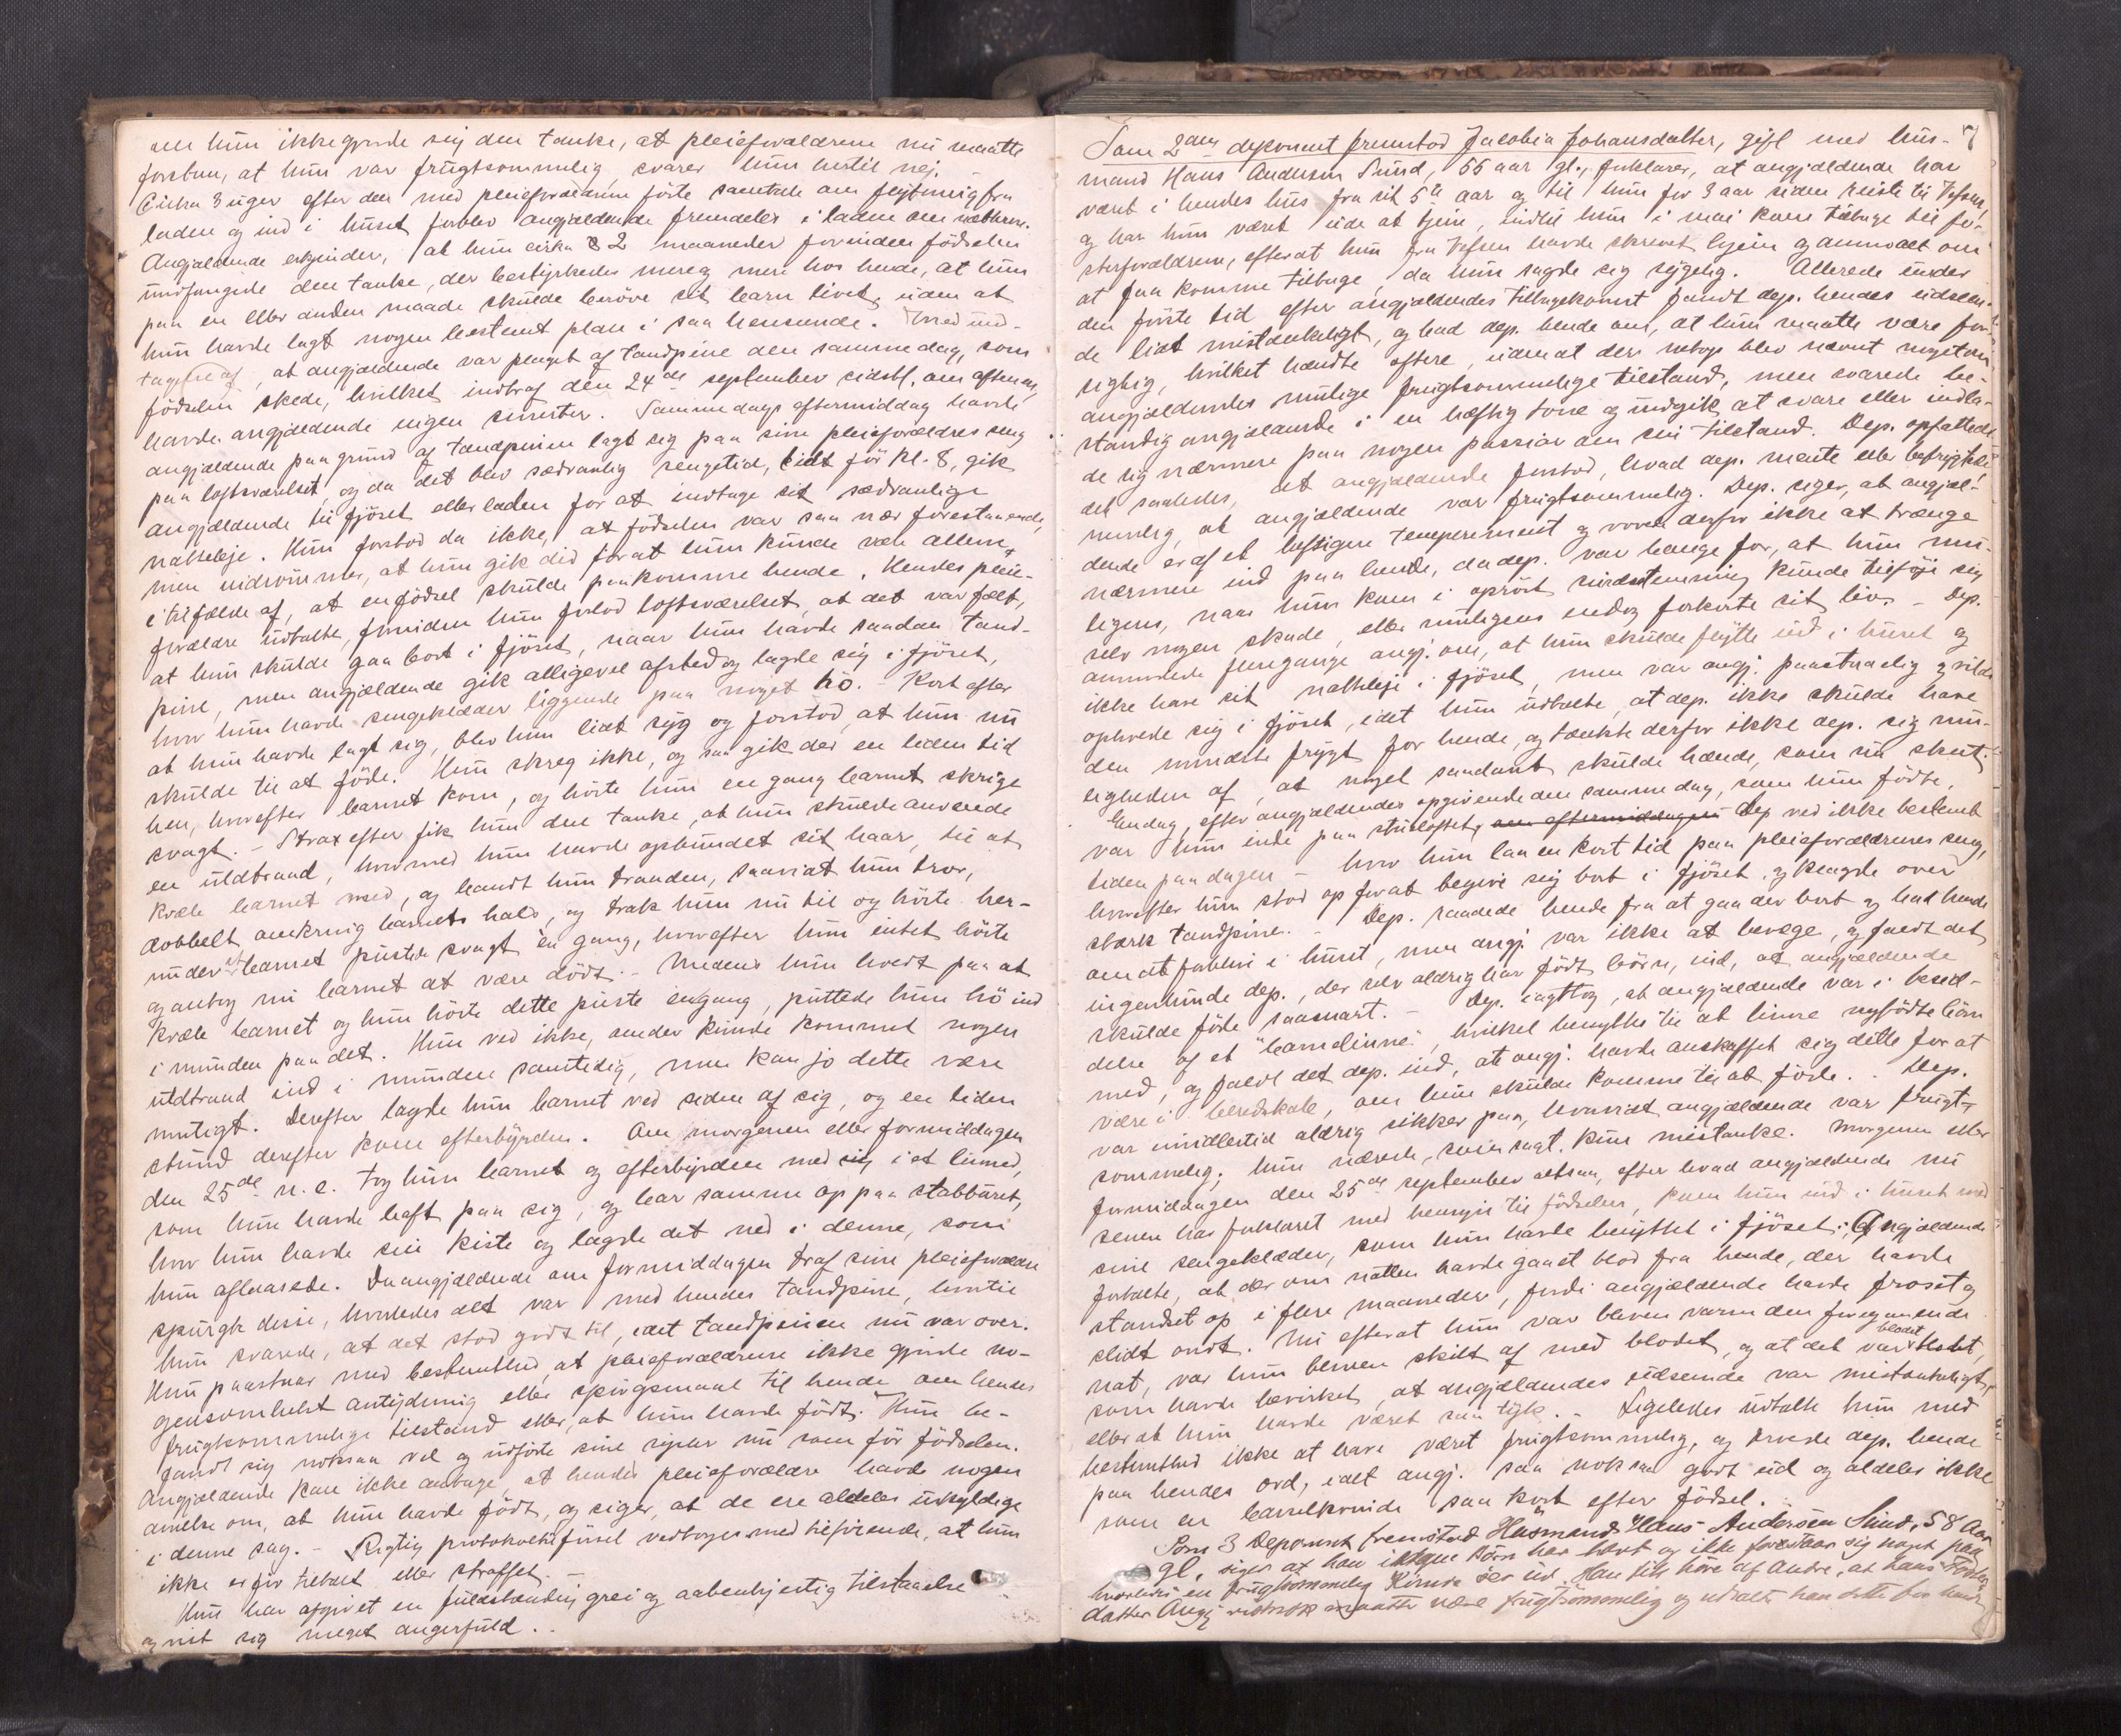 om hun ikke gjorde sig den tanke, at pleieforældrene nu maatte
forstaa, at hun var frugtsommelig, svarer hun hertil nej.
Cirka 3 uger efter den med pleieforældrene förte samtale om flytning fra
laden og ind i huset forblev angjældende fremdeles i laden om nætterne.
Angjældende erkjender, at hun cirka 2 maaneder forinden födselen
undfangede den tanke, der bestyrkedes mere og mere hos hende, at hun
paa en eller anden maade skulde beröve sit barn livet, uden at
hun havde lagt nogen bestemt plan i saa henseende. Med und-
tagelse af, at angjældende var plaget af tandpine den samme dag, som
födselen skede, hvilket indtraf den 24de september sidstl. om aftenen,
havde angjældende ingen smerter. Samme dags eftermiddag havde
angjældende paa grund af tandpinen lagt sig paa sine pleieforældres seng
paa loftsværelset, og da det blev sædvanlig sengetid, lidt för kl. 8, gik
angjældende til fjöset eller laden for at indtage sit sædvanlige
natteleje. Hun forstod da ikke, at födselen var saa nær forestaaende,
men indrömmer, at hun gik did forat hun kunde være allene
i tilfælde af, at en födsel skulde paakomme hende. Hendes pleie-
forældre udtalte, forinden hun forlod loftsværelset, at det var fælt,
at hun skulde gaa bort i fjöset, naar hun havde saadan tand-
pine, men angjældende gik alligevel afsted og lagde sig i fjöset,
hvor hun havde sengeklæder liggende paa noget hö. - Kort efter
at hun havde lagt sig, blev hun lidt syg og forstod, at hun nu
skulde til at föde. Hun skreg ikke, og saa gik der en liden tid
hen, hvorefter barnet kom, og hörte hun en gang barnet skrige
svagt. - Strax efter fik hun den tanke, at hun skulde anvende
en uldtraad, hvormed hun havde opbundet sit haar, til at
kvæle barnet med, og bandt hun traaden, saavidt hun tror,
dobbelt omkring barnets hals, og trak hun nu til og hörte her-
under at barnet pustede svagt en gang, hvorefter hun intet hörte
og antog nu barnet at være dödt. - Medens hun holdt paa at
kvæle barnet og hun hörte dette puste engang, puttede hun hö ind
i munden paa det. Hun ved ikke, om der kunde kommet nogen
uldtraad ind i munden samtidig, men kan jo dette være
muligt. Derefter lagde hun barnet ved siden af sig, og en liden
stund derefter kom efterbyrden. Om morgenen eller formiddagen
den 25de n. e. tog hun barnet og efterbyrden med sig i et linned,
som hun havde haft paa sig, og bar samme op paa stabburet,
hvor hun havde sin kiste og lagde det ned i denne, som
hun aflaasede. Da angjældende om formiddagen traf sine pleieforældre
spurgte disse, hvorledes det var med hendes tandpine, hvortil
hun svarede, at det stod godt til, idet tandpinen nu var over.
Hun paastaar med bestemthed, at pleieforældrene ikke gjorde no-
gensomhelst antydning eller spörgsmaal til hende om hendes
frugtsommelige tilstand eller, at hun havde födt. Hun be-
fandt sig noksaa vel og udförte sine sysler nu som för födselen.
Angjældende kan ikke antage, at hendes pleieforældre havde nogen
anelse om, at hun havde födt, og siger, at de ere aldeles uskyldige
i denne sag. - Rigtig protokoltilförsel vedtoges med tilföiende, at hun
ikke er för tiltalt eller straffet.
Hun har afgivet en fuldstændig, grei og aabenhjertig tilstaaelse
og vist sig meget angerfuld.
7
Som 2den deponent fremstod Jacobia Johansdatter, gift med hus-
mand Hans Andersen Sund, 55 aar gl., forklarer, at angjældende har
været i hendes hus fra sit 5te aar og til hun for 3 aar siden reiste til Vefsen,
og har hun været ude at tjene, indtil hun i mai kom tilbage til fo-
sterforældrene, efterat hun fra Vefsen havde skrevet hjem og anmodet om
at faa komme tilbage, da hun sagde sig sygelig. Allerede under
den förste tid efter angjældendes tilbagekomst fandt dep. hendes udseen-
de lidt mistænkeligt, og bad dep. hende om, at hun maatte være for-
sigtig, hvilket hændte oftere, uden at der netop blev nævnt noget om
angjældendes mulige frugtsommelige tilstand, men svarede be-
standig angjældende i en hæftig tone og undgik at svare eller indla-
de sig nærmere paa nogen passiar om sin tilstand. Dep. opfattede
det saaledes, at angjældende forstod, hvad dep. mente eller befrygtede
nemlig, at angjældende var frugtsommelig. Dep. siger, at angjæl-
dende er af et heftigere temperament og vovede derfor ikke at trænge
nærmere ind paa hende, da dep. var bange for, at hun mu-
ligens, naar hun kom i oprört sindsstemning kunde tilföje sig
selv nogen skade, eller muligens endog forkorte sit liv. - Dep.
anmodede flere gange angj. om, at hun skulde flytte ind i huset og
ikke have sit natteleje i fjöset, men var angj. paastaaelig og vilde
opholde sig i fjöset, idet hun udtalte, at dep. ikke skulde have
den mindste frygt for hende, og tænkte derfor ikke dep. sig mu-
ligheden af, at noget saadant skulde hænde, som nu skeet.
Endog, efter angjældendes opgivende den samme dag, som hun födte,
var hun inde paa stueloftet, om eftermiddagen Dep ved ikke bestemt
tiden paa dagen - hvor hun laa en kort tid paa pleieforældrenes seng,
hvorefter hun stod op forat begive sig bort i fjöset og klagede over
stærk tandpine. - Dep. raadede hende fra at gaa der bort og bad hende
om at forblive i huset, men angj. var ikke at bevæge, og faldt det
ingenlunde dep., der selv aldrig har födt börn, ind, at angjældende
skulde föde saasnart. - Dep. iagttog, at angjældende var i besid-
delse af et "barnelinne", hvilket benyttes til at linne nyfödte börn
med, og faldt det dep. ind, at angj. havde anskaffet sig dette for at
være i beredskab, om hun skulde komme til at föde. - Dep.
var imidlertid aldrig sikker paa, hvorvidt angjældende var frugt-
sommelig; hun nærede, som sagt, kun mistanke. Morgenen eller
formiddagen den 25de september altsaa, efter hvad angjældende nu
senere har forklaret med hensyn til födselen, kom hun ind i huset med
sine sengeklæder, som hun havde benyttet i fjöset. Angjældende
fortalte, at der om natten havde gaaet blod fra hende, der havde
standset op i flere maaneder, fordi angjældende havde frosset og
slidt ondt. Nu efterat hun var bleven varm den foregaaende
nat, var hun bleven skilt af med blodet, og at det var blodet,
som havde bevirket, at angjældendes udseende var mistænkeligt,
eller at hun havde været saa tyk. - Ligeledes udtalte hun med
bestemthed ikke at have været frugtsommelig, og troede dep. hende
paa hendes ord, idet angj. saa noksaa godt ud og aldeles ikke
som en barselkvinde saa kort efter födsel.
Som 3 Deponent fremstod Husmand Hans Andersen Sund, 58 Aar
gl, siger at han ikke Börn har havt og ikke forstaar sig noget paa
hvorledes en frugtsommelig Kvinde ser ud. Han fik höre af andre, at hans Foster
datter Angj maatte være frugtsommelig og udtalte han dette for hans